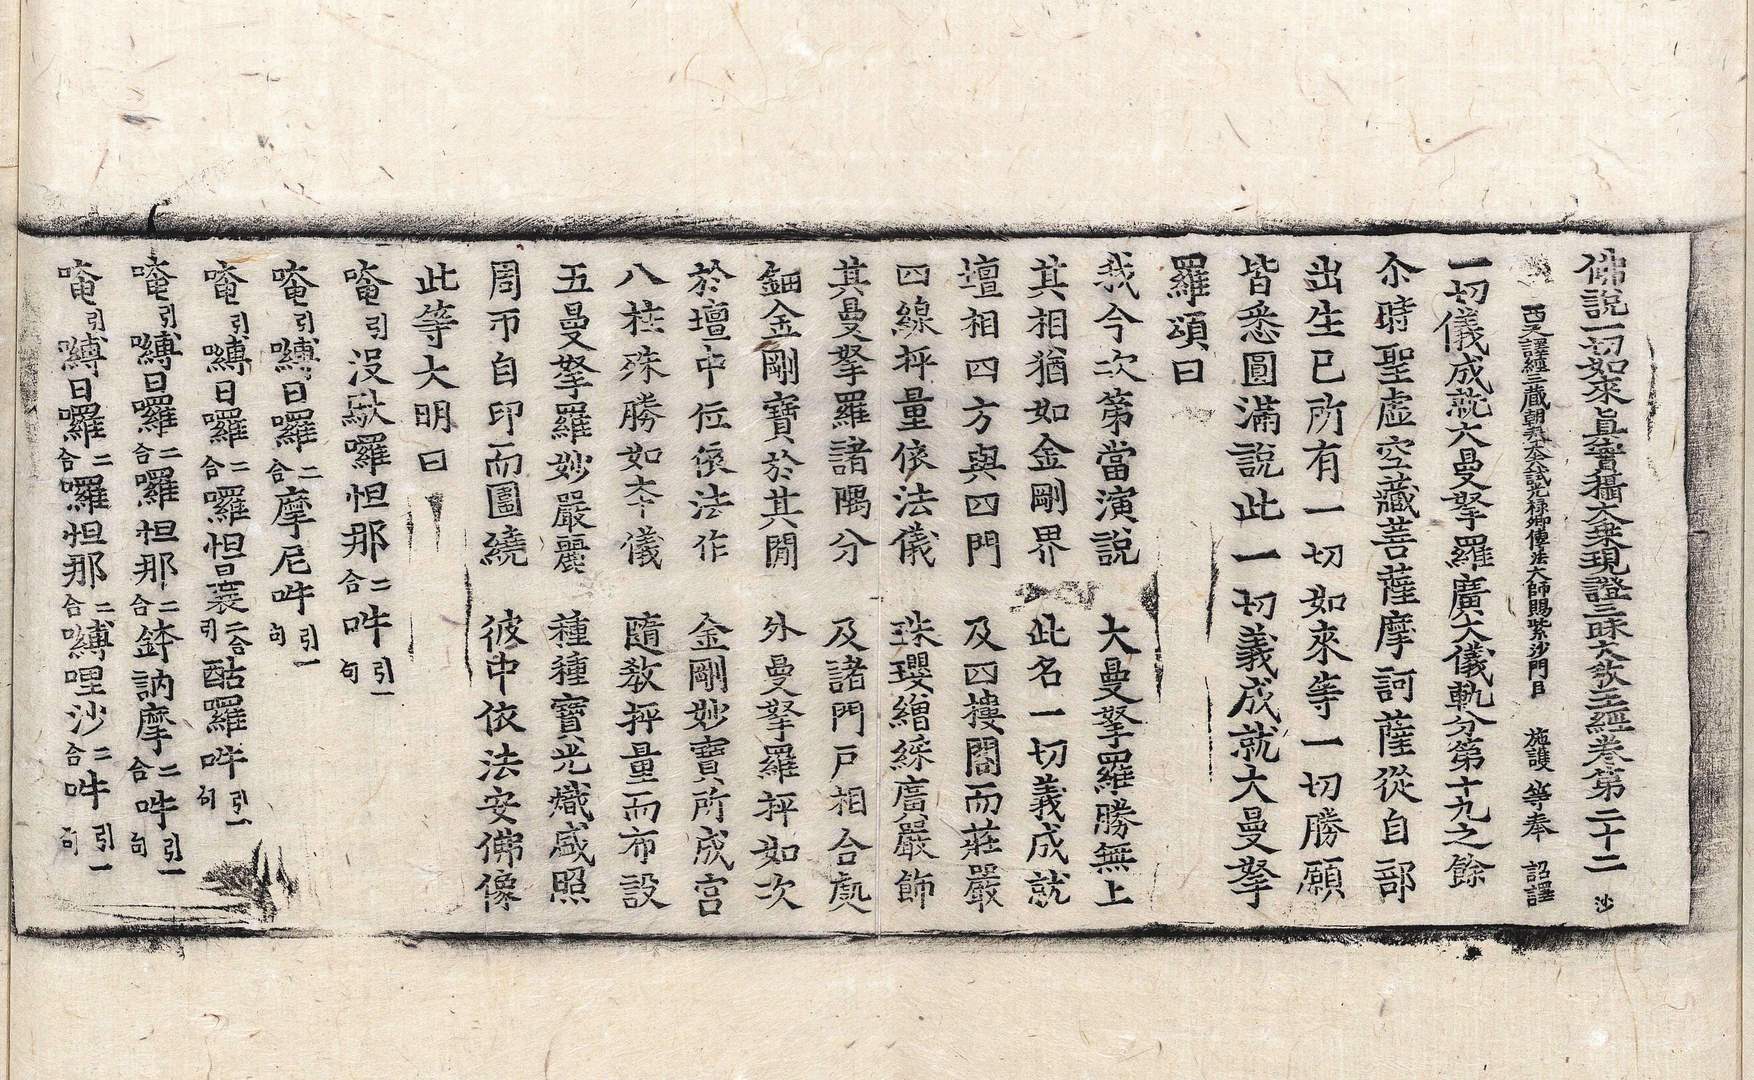 佛說一切如來眞實攝大乘現證三昧大敎王經卷第二十二 沙
西天譯經三藏朝奉大夫試光祿卿傳法大師賜紫沙門臣 施護 等奉 詔譯
一切儀成就大曼拏羅廣大儀軌分第十九之餘
尒時聖虛空藏菩薩摩訶薩從自部
出生已所有一切如來等一切勝願
皆悉圓滿說此一切義成就大曼拏
羅頌曰
我今次第當演說 大曼拏羅勝無上
其相猶如金剛界 此名一切義成就
壇相四方與四門 及四樓閣而莊嚴
四線抨量依法儀 珠瓔繒綵廣嚴飾
其曼拏羅諸隅分 及諸門戶相合處
鈿金剛寶於其閒 外曼拏羅抨如次
於壇中位依法作 金剛妙寶所成宮
八柱殊勝如本儀 隨敎抨量而布設
五曼拏羅妙嚴麗 種種寶光熾盛照
周帀自印而圍繞 彼中依法安佛像
此等大明曰
唵引沒馱囉怛那二合吽引一句
唵引嚩日囉二合摩尼吽引一句
唵引嚩日囉二合囉怛曩二合引酤羅吽引一句
唵引嚩日囉二合囉怛那二合鉢訥摩二合吽引一句
唵引嚩日囉二合囉怛那二合嚩哩沙二合吽引一句